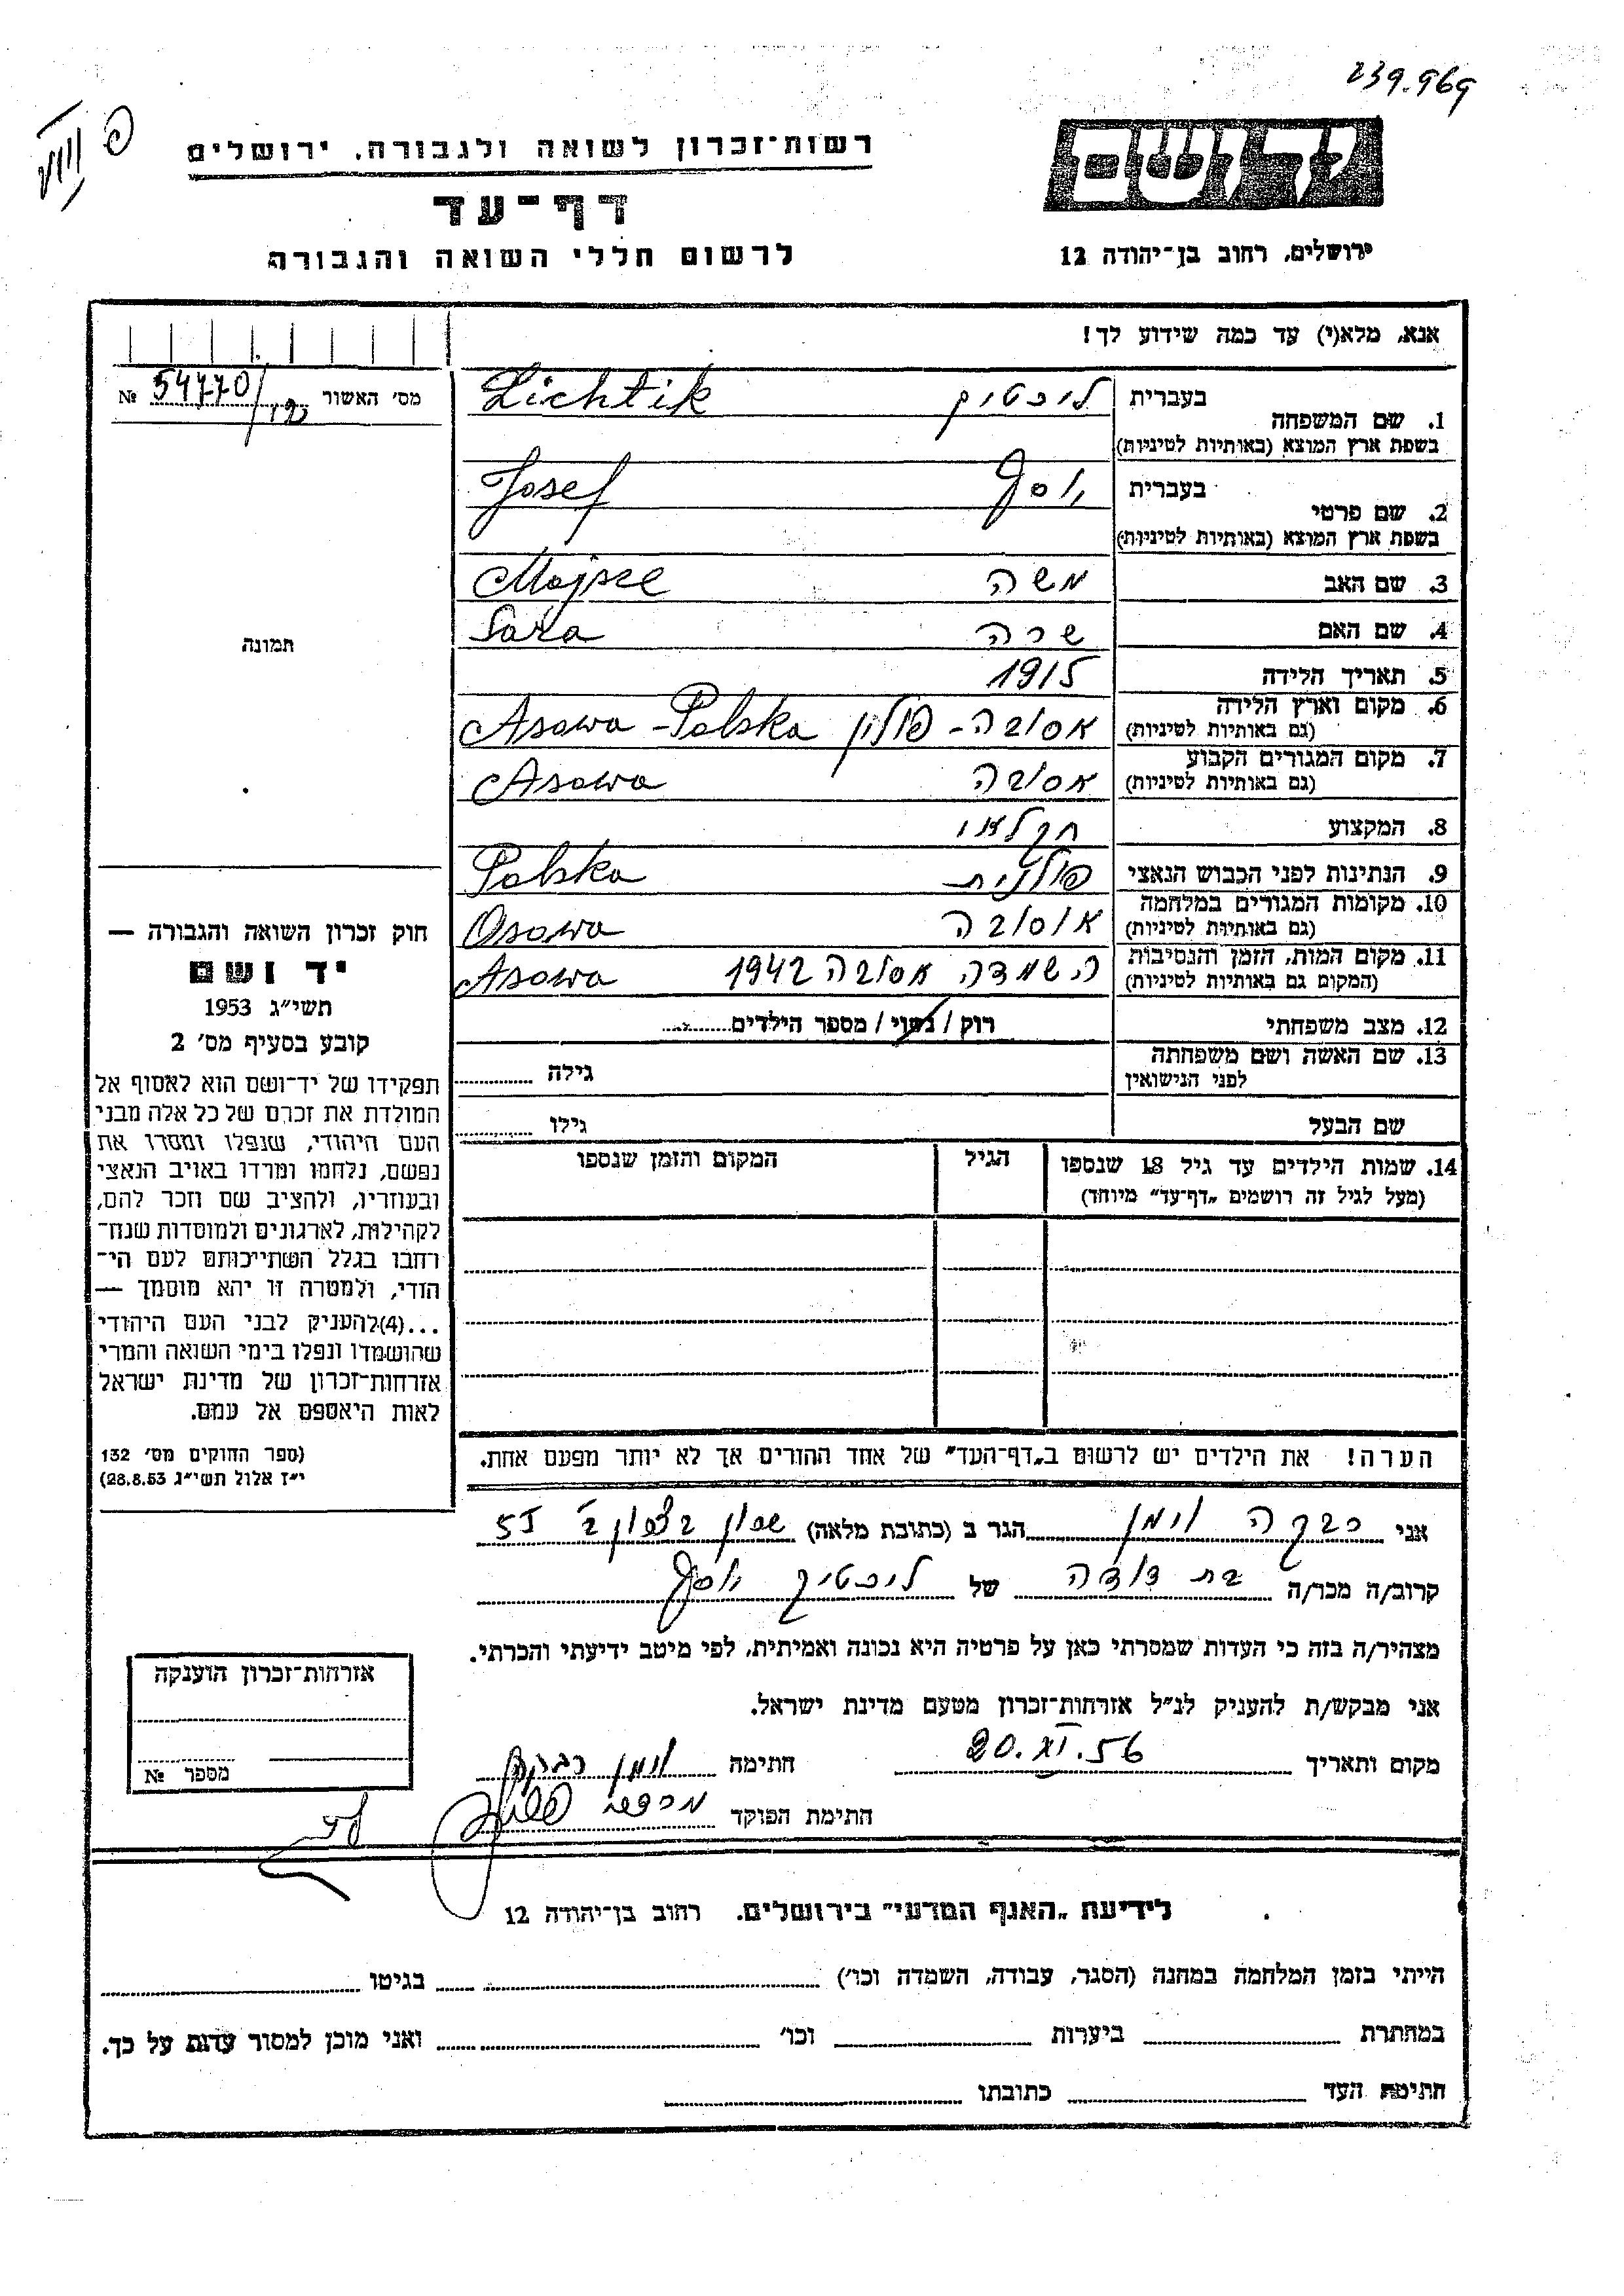 239.969
רשות־זכרון לשואה ולגבורה, ירושלים
דף־עד
לרשום חללי השואה והגבורה
יד ושם
ירושלים, רחוב בן־יהודה 12
אנא, מלא(י) עד כמה שידוע לך!
מס׳ האשור 54770 №
1. שם המשפחה בעברית ליכטיק Lichtik
בשפת ארץ המוצא (באותיות לטיניות)
2. שם פרטי בעברית יוסף Josef
בשפת ארץ המוצא (באותיות לטיניות)
3. שם האב משה Mojsze
4. שם האם שרה Sara
5. תאריך הלידה 1915
6. מקום וארץ הלידה אסובה - פולין Asowa - Polska
(גם באותיות לטיניות)
7. מקום המגורים הקבוע אסובה Asowa
(גם באותיות לטיניות)
8. המקצוע חקלאי
9. הנתינות לפני הכבוש הנאצי פולנית Polska
10. מקומות המגורים במלחמה אוסובה Osowa
(גם באותיות לטיניות)
11. מקום המות, הזמן והנסיבות השמדה אסובה 1942 Asowa
(המקום גם באותיות לטיניות)
12. מצב משפחתי רוק / נשוי / מספר הילדים
13. שם האשה ושם משפחתה גילה
לפני הנישואין
שם הבעל גילו
14. שמות הילדים עד גיל 18 שנספו הגיל המקום והזמן שנספו
(מעל לגיל זה רושמים „דף־עד״ מיוחד)
הערה! את הילדים יש לרשום ב„דף־העד״ של אחד ההורים אך לא יותר מפעם אחת.
תמונה
חוק זכרון השואה והגבורה —
יד ושם
תשי״ג 1953
קובע בסעיף מס׳ 2
תפקידו של יד־ושם הוא לאסוף אל
המולדת את זכרם של כל אלה מבני
העם היהודי, שנפלו ומסרו את
נפשם, נלחמו ומרדו באויב הנאצי
ובעוזריו, ולהציב שם וזכר להם,
לקהילות, לארגונים ולמוסדות שנח־
רחבו בגלל השתייכותם לעם הי־
הודי, ולמטרה זו יהא מוסמך —
...(4)להעניק לבני העם היהודי
שהושמדו ונפלו בימי השואה והמרי
אזרחות־זכרון של מדינת ישראל
לאות היאספם אל עמם.
(ספר החוקים מס׳ 132
י״ז אלול תשי״ג 28.8.53)
אני רבקה וימן הגר ב (כתובת מלאה) שכון
קרוב/ה מכר/ה בת דודה של ליכטיק יוסף
מצהיר/ה בזה כי העדות שמסרתי כאן על פרטיה היא נכונה ואמיתית, לפי מיטב ידיעתי והכרתי.
אני מבקש/ת להעניק לנ״ל אזרחות־זכרון מטעם מדינת ישראל.
מקום ותאריך 20.XI.56 חתימה וימן רבקה
חתימת הפוקד
אזרחות־זכרון הוענקה
מספר №
לידיעת „האגף המדעי״ בירושלים, רחוב בן־יהודה 12
הייתי בזמן המלחמה במחנה (הסגר, עבודה, השמדה וכו׳) בגיטו
במחתרת ביערות וכו׳ ואני מוכן למסור עדות על כך.
חתימת העד כתובתו